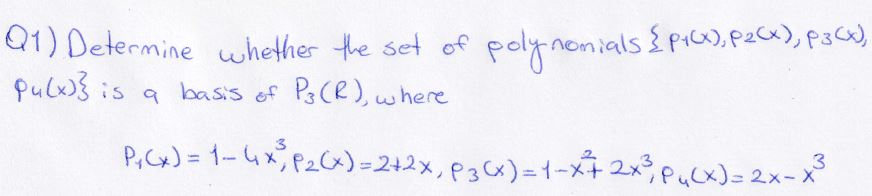 Q1) Determine whether the set of polynomials {p₁(x), p₂(x), p₃(x),
p₄(x)} is a basis of P₃(R), where
P₁(x) = 1-4x³, p₂(x) = 2+2x, p₃(x) = 1-x²+2x³, p₄(x) = 2x-x³